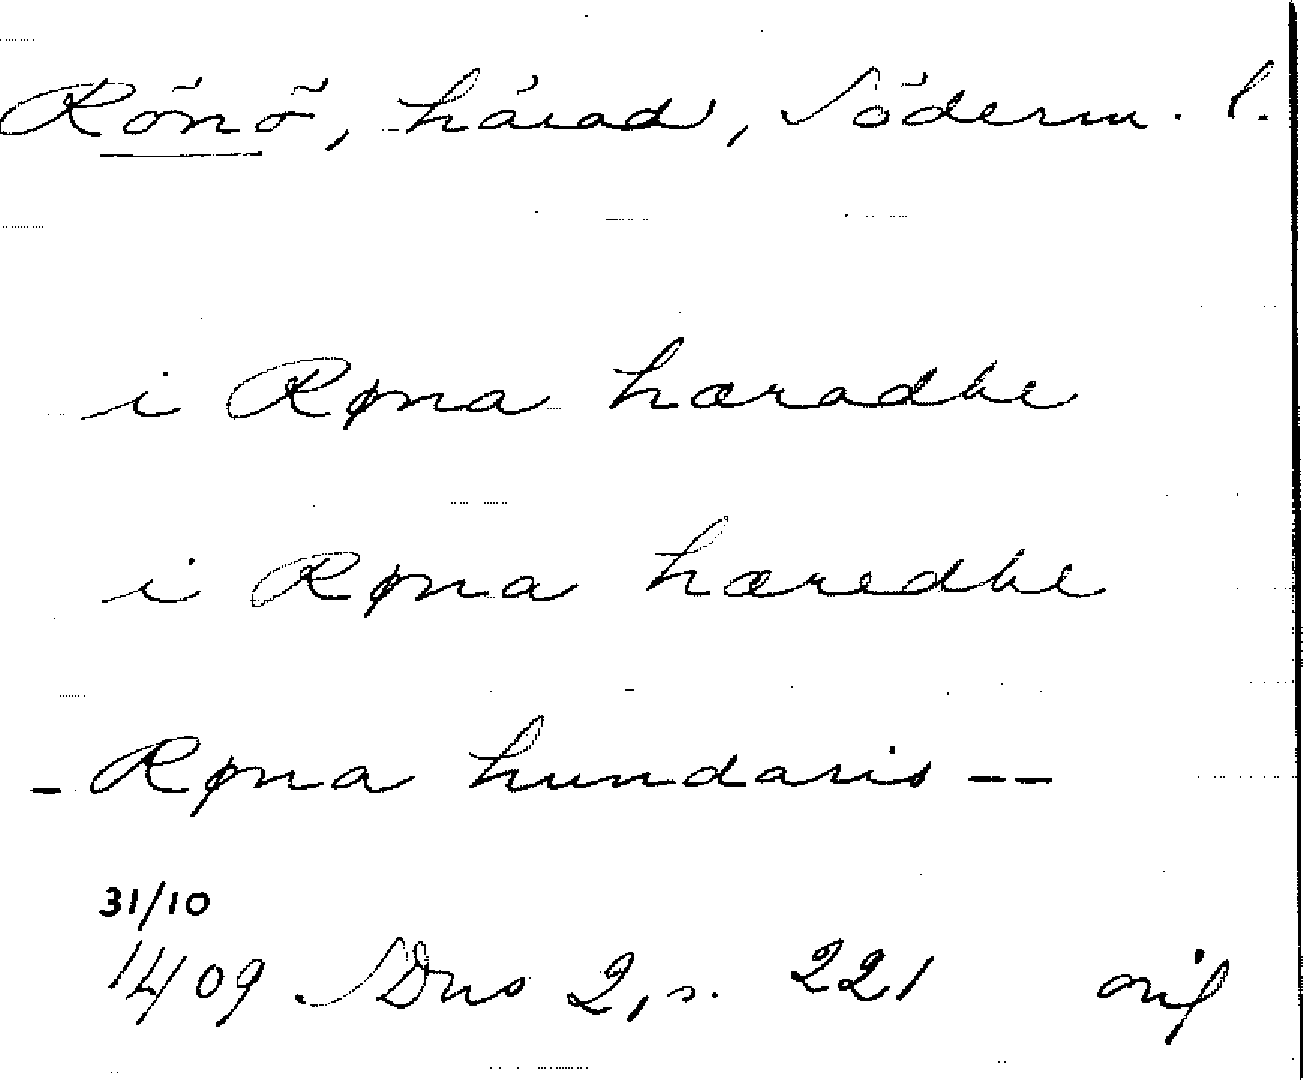 Rönö, härad, Söderm. l.
i Røna hæradhe
i Røna hæredhe
- Røna hundaris --
31/10
1409 SDns 2, s. 221 orig